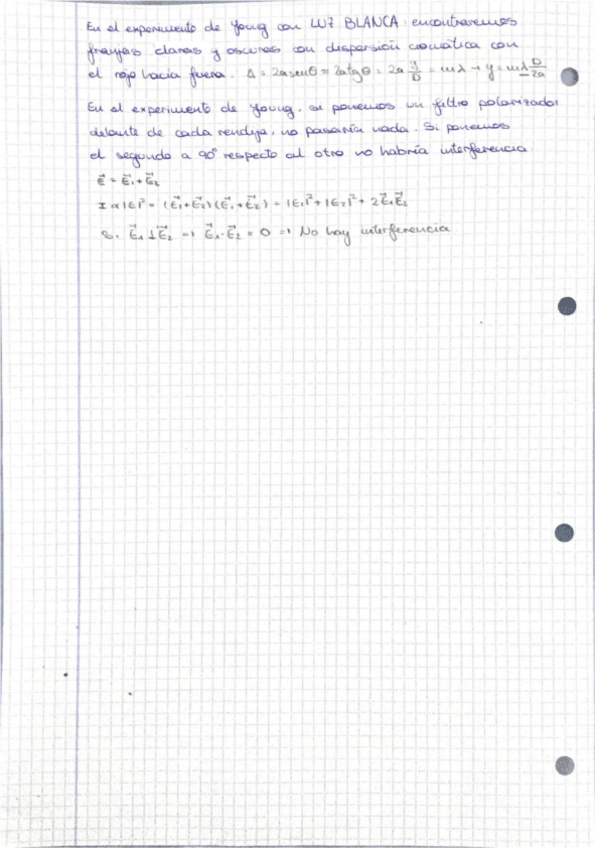 En el experimento de Young con LUZ BLANCA encontraremos
franjas claras y oscuras con dispersión cromática con
el rojo hacia fuera. Δ = 2a senθ ≈ 2a tgθ = 2a y/D = mλ → y = mλ D/2a
En el experimento de Young, si ponemos un filtro polarizador
delante de cada rendija, no pasaría nada. Si ponemos
el segundo a 90° respecto al otro no habría interferencia.
E⃗ = E⃗₁ + E⃗₂
I ∝ |E|² = (E⃗₁+E⃗₂)(E⃗₁+E⃗₂) = |E₁|² + |E₂|² + 2E⃗₁E⃗₂
Si E⃗₁ ⊥ E⃗₂ ⇒ E⃗₁·E⃗₂ = 0 ⇒ No hay interferencia